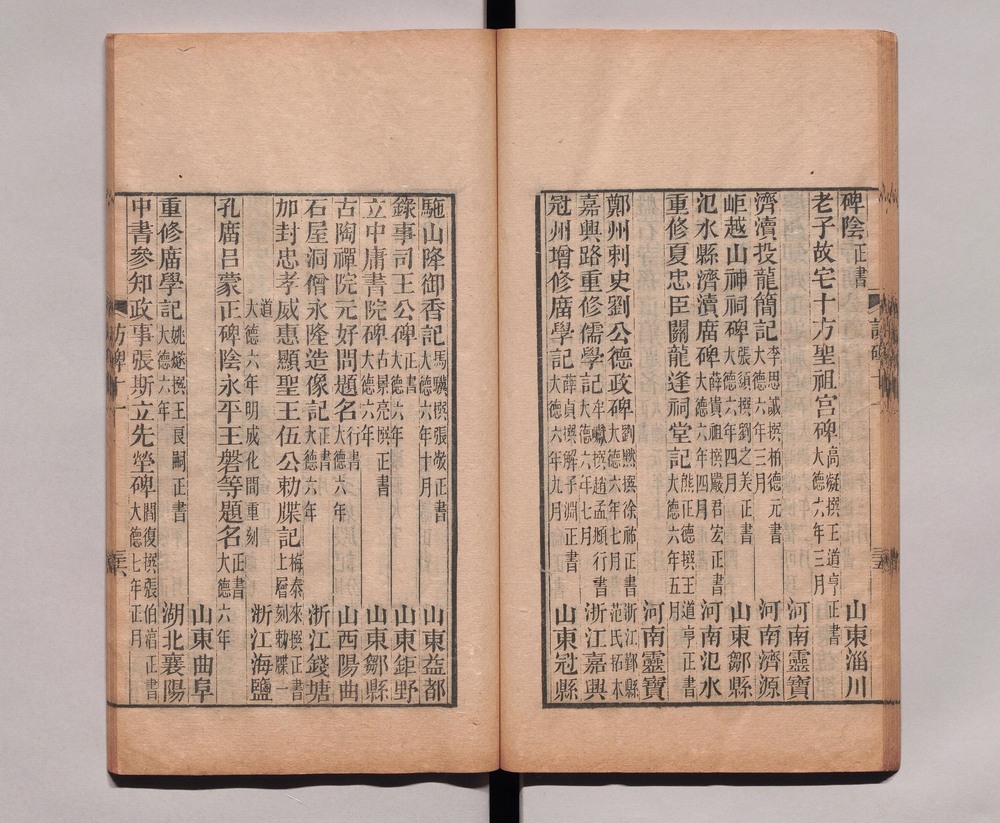 碑陰正書 山東淄川
老子故宅十方聖祖宮碑高凝撰王道亨正書大德六年三月
河南靈寶
濟瀆投龍簡記李思誠撰柏德元書大德六年三月 河南濟源
岠越山神祠碑張須撰劉之美正書大德六年四月 山東鄒縣
氾水縣濟瀆廟碑薛貴祖撰嚴君宏正書大德六年四月 河南氾水
重修夏忠臣關龍逢祠堂記熊正德撰王道亨正書大德六年五月
河南靈寶
鄭州刺史劉公德政碑劉撰徐正書大德六年七月 浙江鄞縣范氏拓本
嘉興路重修儒學記牟巘撰趙孟頫行書大德六年七月 浙江嘉興
冠州增修廟學記薛貞撰解子淵正書大德六年九月 山東冠縣
馳山降御香記馬驥撰張敬正書大德六年十月 山東益都
錄事司王公碑正書大德六年 山東鉅野
立中庸書院碑古景亮撰正書大德六年 山東鄒縣
古陶禪院元好問題名行書大德六年 山西陽曲
石屋洞僧永隆造像記正書大德六年 浙江錢塘
加封忠孝威惠顯聖王伍公勅牒記梅泰來撰正書上層刻勅牒一
道大德六年明成化間重刻 浙江海鹽
孔廟呂蒙正碑陰永平王磐等題名正書大德六年
山東曲阜
重修廟學記姚燧撰王良嗣正書大德六年 湖北襄陽
中書參知政事張斯立先塋碑閻復撰張伯淯正書大德七年正月
訪碑十一
三五
訪碑十一
三六